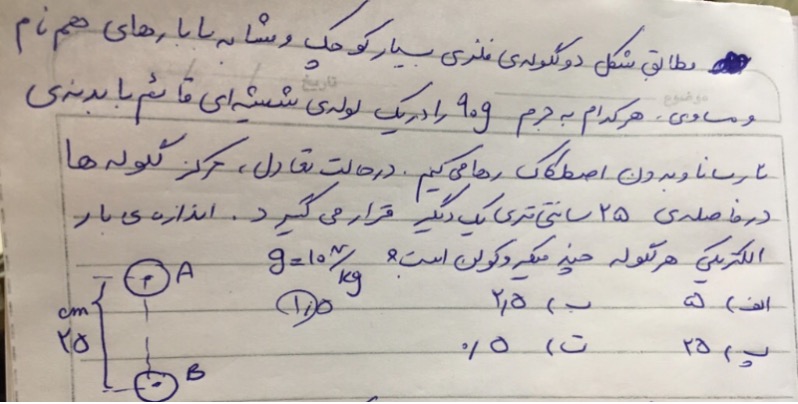 مطابق شکل دو گلوله‌ی فلزی بسیار کوچک و مشابه با بارهای هم نام
و مساوی، هرکدام به جرم 90g را در یک لوله‌ی شیشه‌ای قائم با بدنه‌ی
نارسانا و بدون اصطکاک رها می‌کنیم. در حالت تعادل، مرکز گلوله ها
در فاصله‌ی ۲۵ سانتی‌متری یک دیگر قرار می گیرد. اندازه‌ی بار
الکتریکی هر گلوله چند میکروکولن است؟ g=10 N/kg
الف) ۵ ب) ۲,۵ ۱,۵
پ) ۲۵ ت) ۰/۵
A
cm
۲۵
B
تاریخ
موضوع